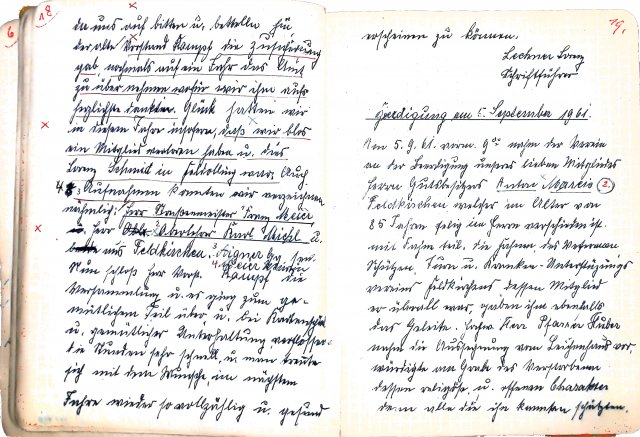 6
18
da uns auf bitten u. betteln hin
der alte Vorstand Kampf die Zusicherung
gab nochmals auf ein Jahr das Amt
zu übernehmen wofür wir ihm aufs
herzlichste dankten. Glück hatten wir
in diesem Jahre insofern, daß wir blos
ein Mitglied verloren haben u. dies
Lorenz Schmid in Feldolling war. Auch
4 Aufnahmen konnten wir verzeichnen
nähmlich: Herr Wachtmeister Meier
u. Herr Oberlehrer Kurt Michl u.
aus Feldkirchen. 3. Aigner Gg. sen.
4. Meier
Nun schloß Herr Vorst. Kampf die
Versammlung u. es ging zum ge-
mütlichem Teil über u. bei Kartenspiel
u. gemütlicher Unterhaltung verflossen
die Stunden sehr schnell u. man trennte
sich mit dem Wunsche, im nächsten
Jahre wieder so vollzählig u. gesund
19.
erscheinen zu können.
Lechner Lorenz
Schriftführer
Beerdigung am 5. September 1961.
Am 5.9.61. vorm. 9 nahm der Verein
an der Beerdigung unseres lieben Mitgliedes
Herrn Gutsbesitzers Anton 2.
Feldkirchen welcher im Alter von
85 Jahren selig im Herrn verschieden ist.
mit Fahne teil. die Fahnen des Veteranen
Schützen, Turn u. Kranken-Unterstüzungs
vereins Feldkirchens dessen Mitglied
er überall war, gaben ihm ebenfalls
das Geleite. Herr Pfarrer Huber
nahm die Aussegnung vom Leichenhaus vor.
würdigte am Grabe des Verstorbenen
dessen religiöse u. offenen Charakter
denn alle die ihn kannten schätzten.